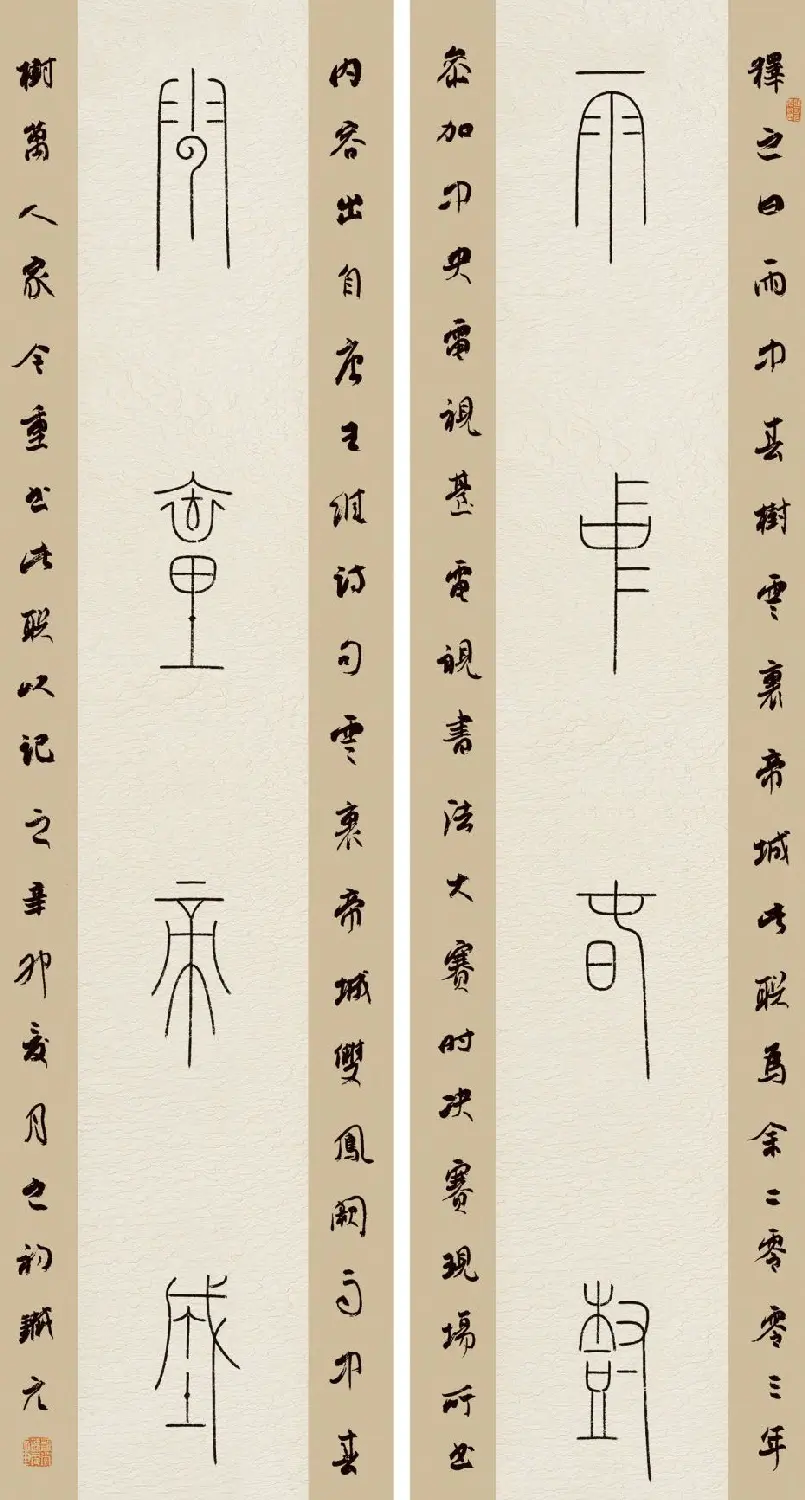 釋之曰雨中春樹雲裏帝城此聯爲余二零零三年
雨中春樹
參加中央電視臺電視書法大賽时决賽現場所書
內容出自唐王維詩句雲裏帝城雙鳳闕雨中春
雲裏帝城
樹萬人家今重書此聯以記之辛卯夏月之初